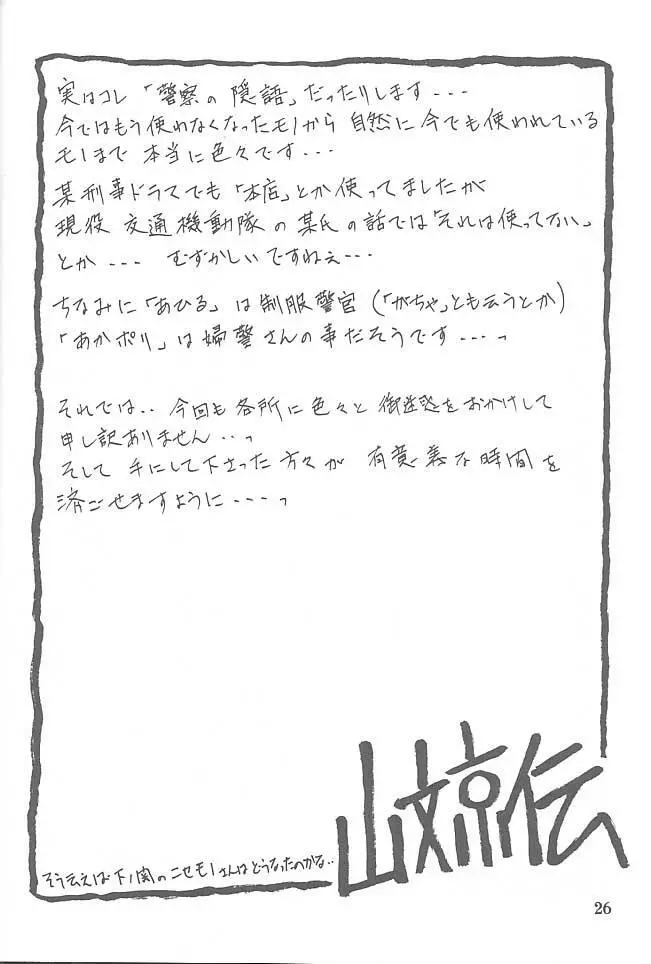 実はコレ「警察の隠語」だったりします---
今ではもう使わなくなったモノから 自然に今でも使われている
モノまで 本当に色々です---
某刑事ドラマでも「本店」とか使ってましたが
現役 交通機動隊の某氏の話では「それは使ってない」
とか--- むずかしいですねぇ---
ちなみに「あひる」は制服警官(「がちゃ」とも云うとか)
「あかポリ」は婦警さんの事だそうです---っ
それでは.. 今回も各所に色々と御迷惑をおかけして
申し訳ありません..っ
そして 手にして下さった方々が 有意義な時間を
済ごせますように---っ
山文京伝
そう云えば下ノ関のニセモノさんはどうなったのかな..
26